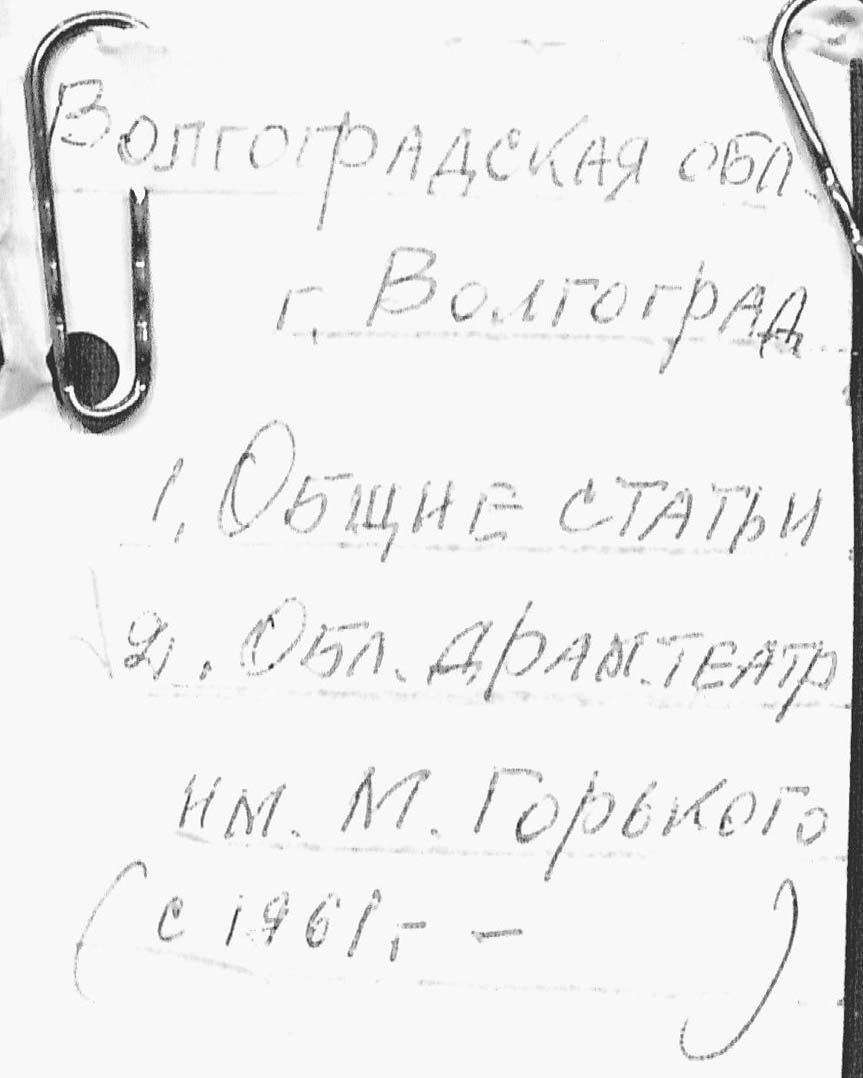 Волгоградская обл.
г. Волгоград
1. Общие статьи
2. Обл. драм.театр
им. М. Горького
(с 1961г - )